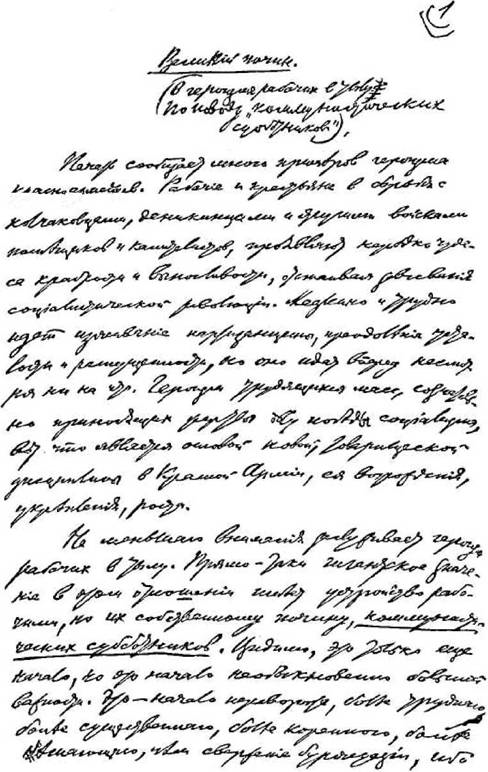 1
Великій почин.
(О героизме рабочих в тылу.
По поводу „коммунистических
субботников").
Печать сообщает много примеров героизма
красноармейцев. Рабочие и крестьяне в борьбе с
колчаковцами, деникинцами и другими войсками
помещиков и капиталистов, проявляют нередко чуде-
са храбрости и выносливости, отстаивая завоевания
социалистической революции. Медленно и трудно
идет изживание партизанщины, преодоление уста-
лости и распущенности, но оно идет вперед несмот-
ря ни на что. Героизм трудящихся масс, сознатель-
но приносящих жертвы делу победы социализма,
вот что является основой новой, товарищеской
дисциплины в Красной Армии, ея возрождения,
укрепления, роста.
Не меньшаго внимания заслуживает героизм
рабочих в тылу. Прямо-таки гигантское значе-
ние в этом отношении имеет устройство рабо-
чими, по их собственному почину, коммунисти-
ческих субботников. Видимо, это только еще
начало, но это начало необыкновенно большой
важности. Это — начало переворота, более труднаго,
более существеннаго, более кореннаго, более
решающаго, чем свержение буржуазии, ибо